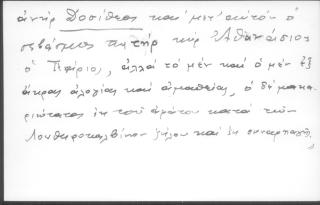 ἀνὴρ Δοσίθεος καὶ μετ' αὐτὸν ὁ
σεβάσμιος πατὴρ κὺρ Ἀθανάσιος
ὁ Πιρίριος, ἀλλὰ τὸ μὲν καὶ ὁ μὲν ἐξ
ἄκρας ἀλογίας καὶ ἀμαθείας, ὁ δὲ μακα
ριώτατος ἐκ τοῦ ἀμάτου κατὰ τῶν
Λουθηροκαλβίνων ζήλου καὶ ἐκ συναρπαγῆς